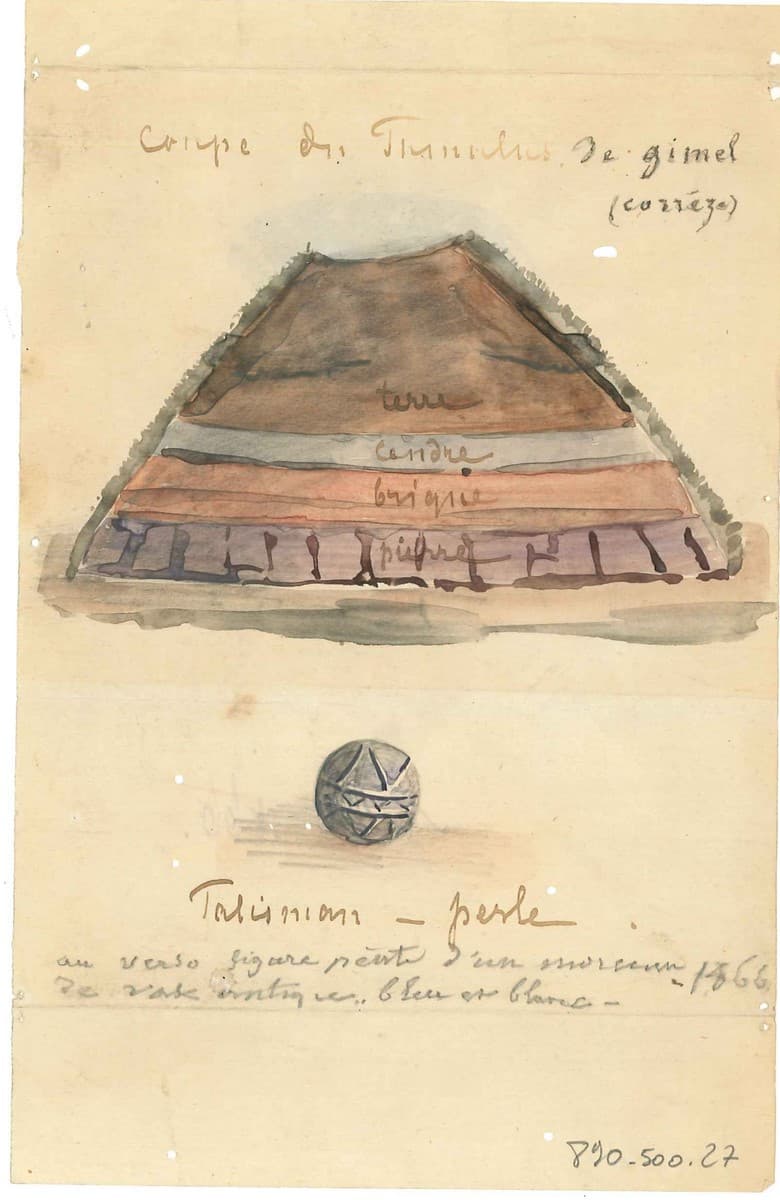 Coupe du Tumulus de gimel
(corrèze)
terre
cendre
brique
pierre
Talisman – perle
au verso figure peinte d'un morceau
de vase antique.. bleu et blanc – 1866
890-500.27